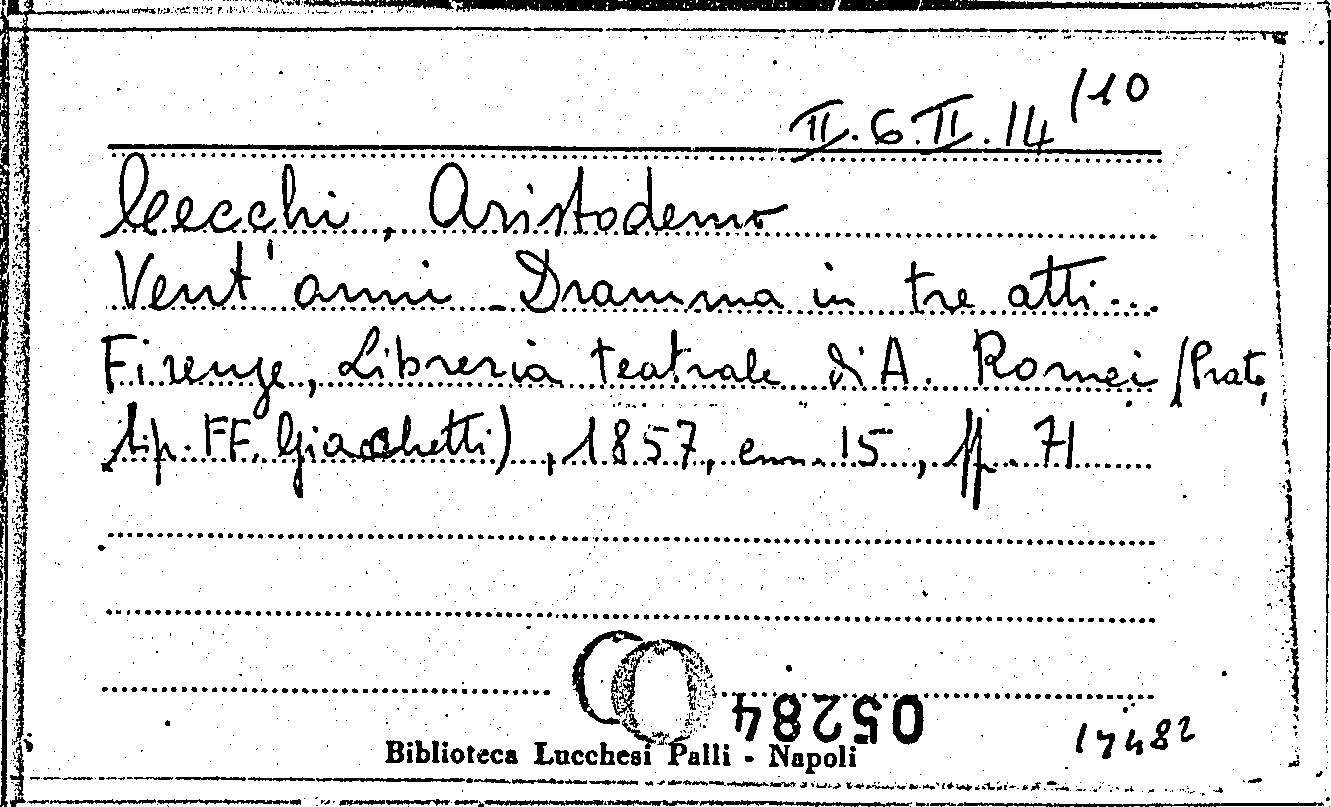 II.6.II.14 /10
Cecchi, Aristodemo
Vent'anni - Dramma in tre atti...
Firenze, Libreria teatrale di A. Romei /Prato,
tip. FF. Giacchetti), 1857, cm. 15, pp. 71
05284
17482
Biblioteca Lucchesi Palli - Napoli